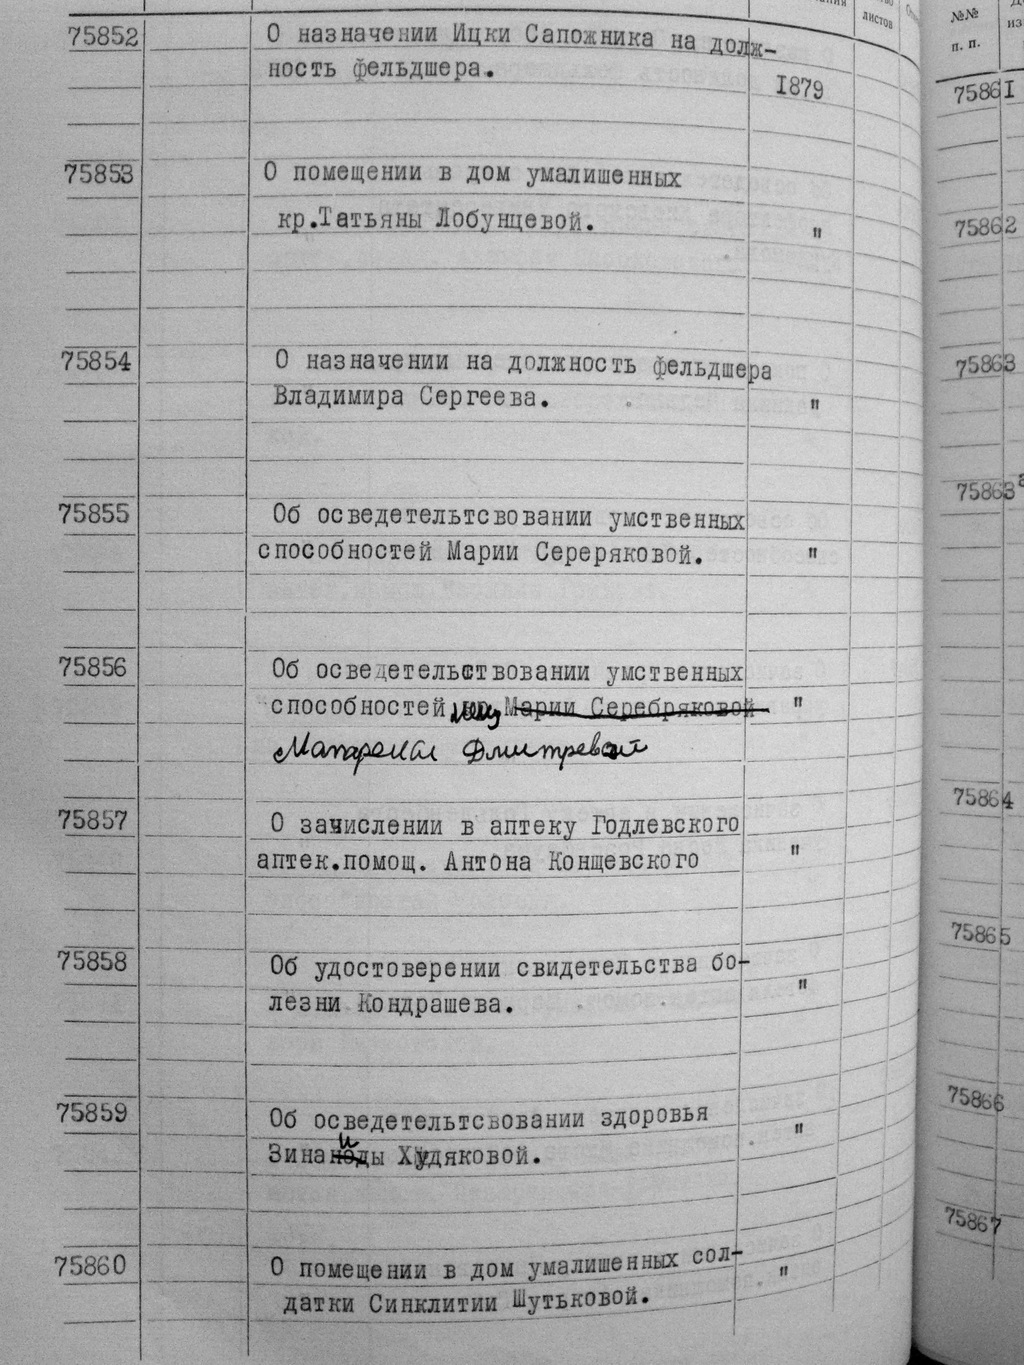 листов
№№
п. п.
75852
О назначении Ицки Сапожника на долж-
ность фельдшера.
1879
75853
О помещении в дом умалишенных
кр.Татьяны Лобунцевой.
"
75854
О назначении на должность фельдшера
Владимира Сергеева.
"
75855
Об осведетельтсвовании умственных
способностей Марии Сереряковой.
"
75856
Об осведетельствовании умственных
способностей Марии Серебряковой
"
Дмитревой
75857
О зачислении в аптеку Годлевского
аптек.помощ. Антона Конщевского
"
75858
Об удостоверении свидетельства бо-
лезни Кондрашева.
"
75859
Об осведетельтсвовании здоровья
Зинаиды Худяковой.
"
75860
О помещении в дом умалишенных сол-
датки Синклитии Шутьковой.
"
75861
75862
75863
75863а
75864
75865
75866
75867